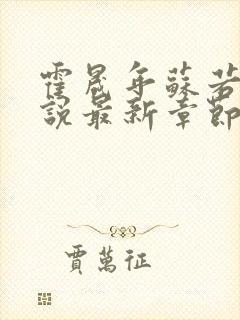 霍晟年蘇
說最新章節
賈萬征